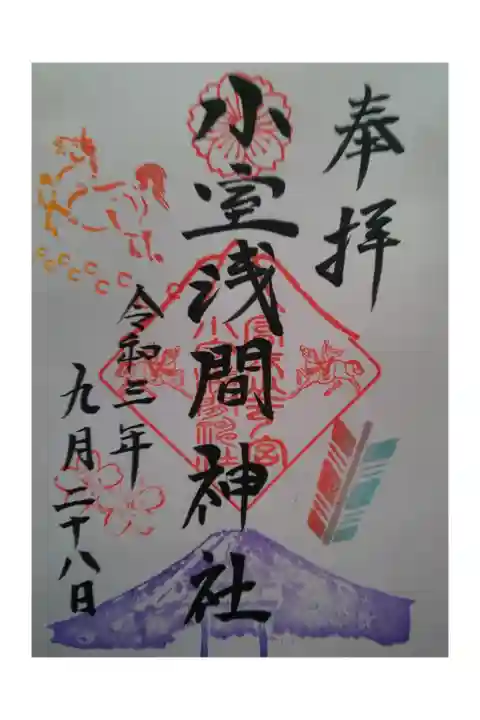 奉拝
小室浅間神社
令和三年
九月二十八日